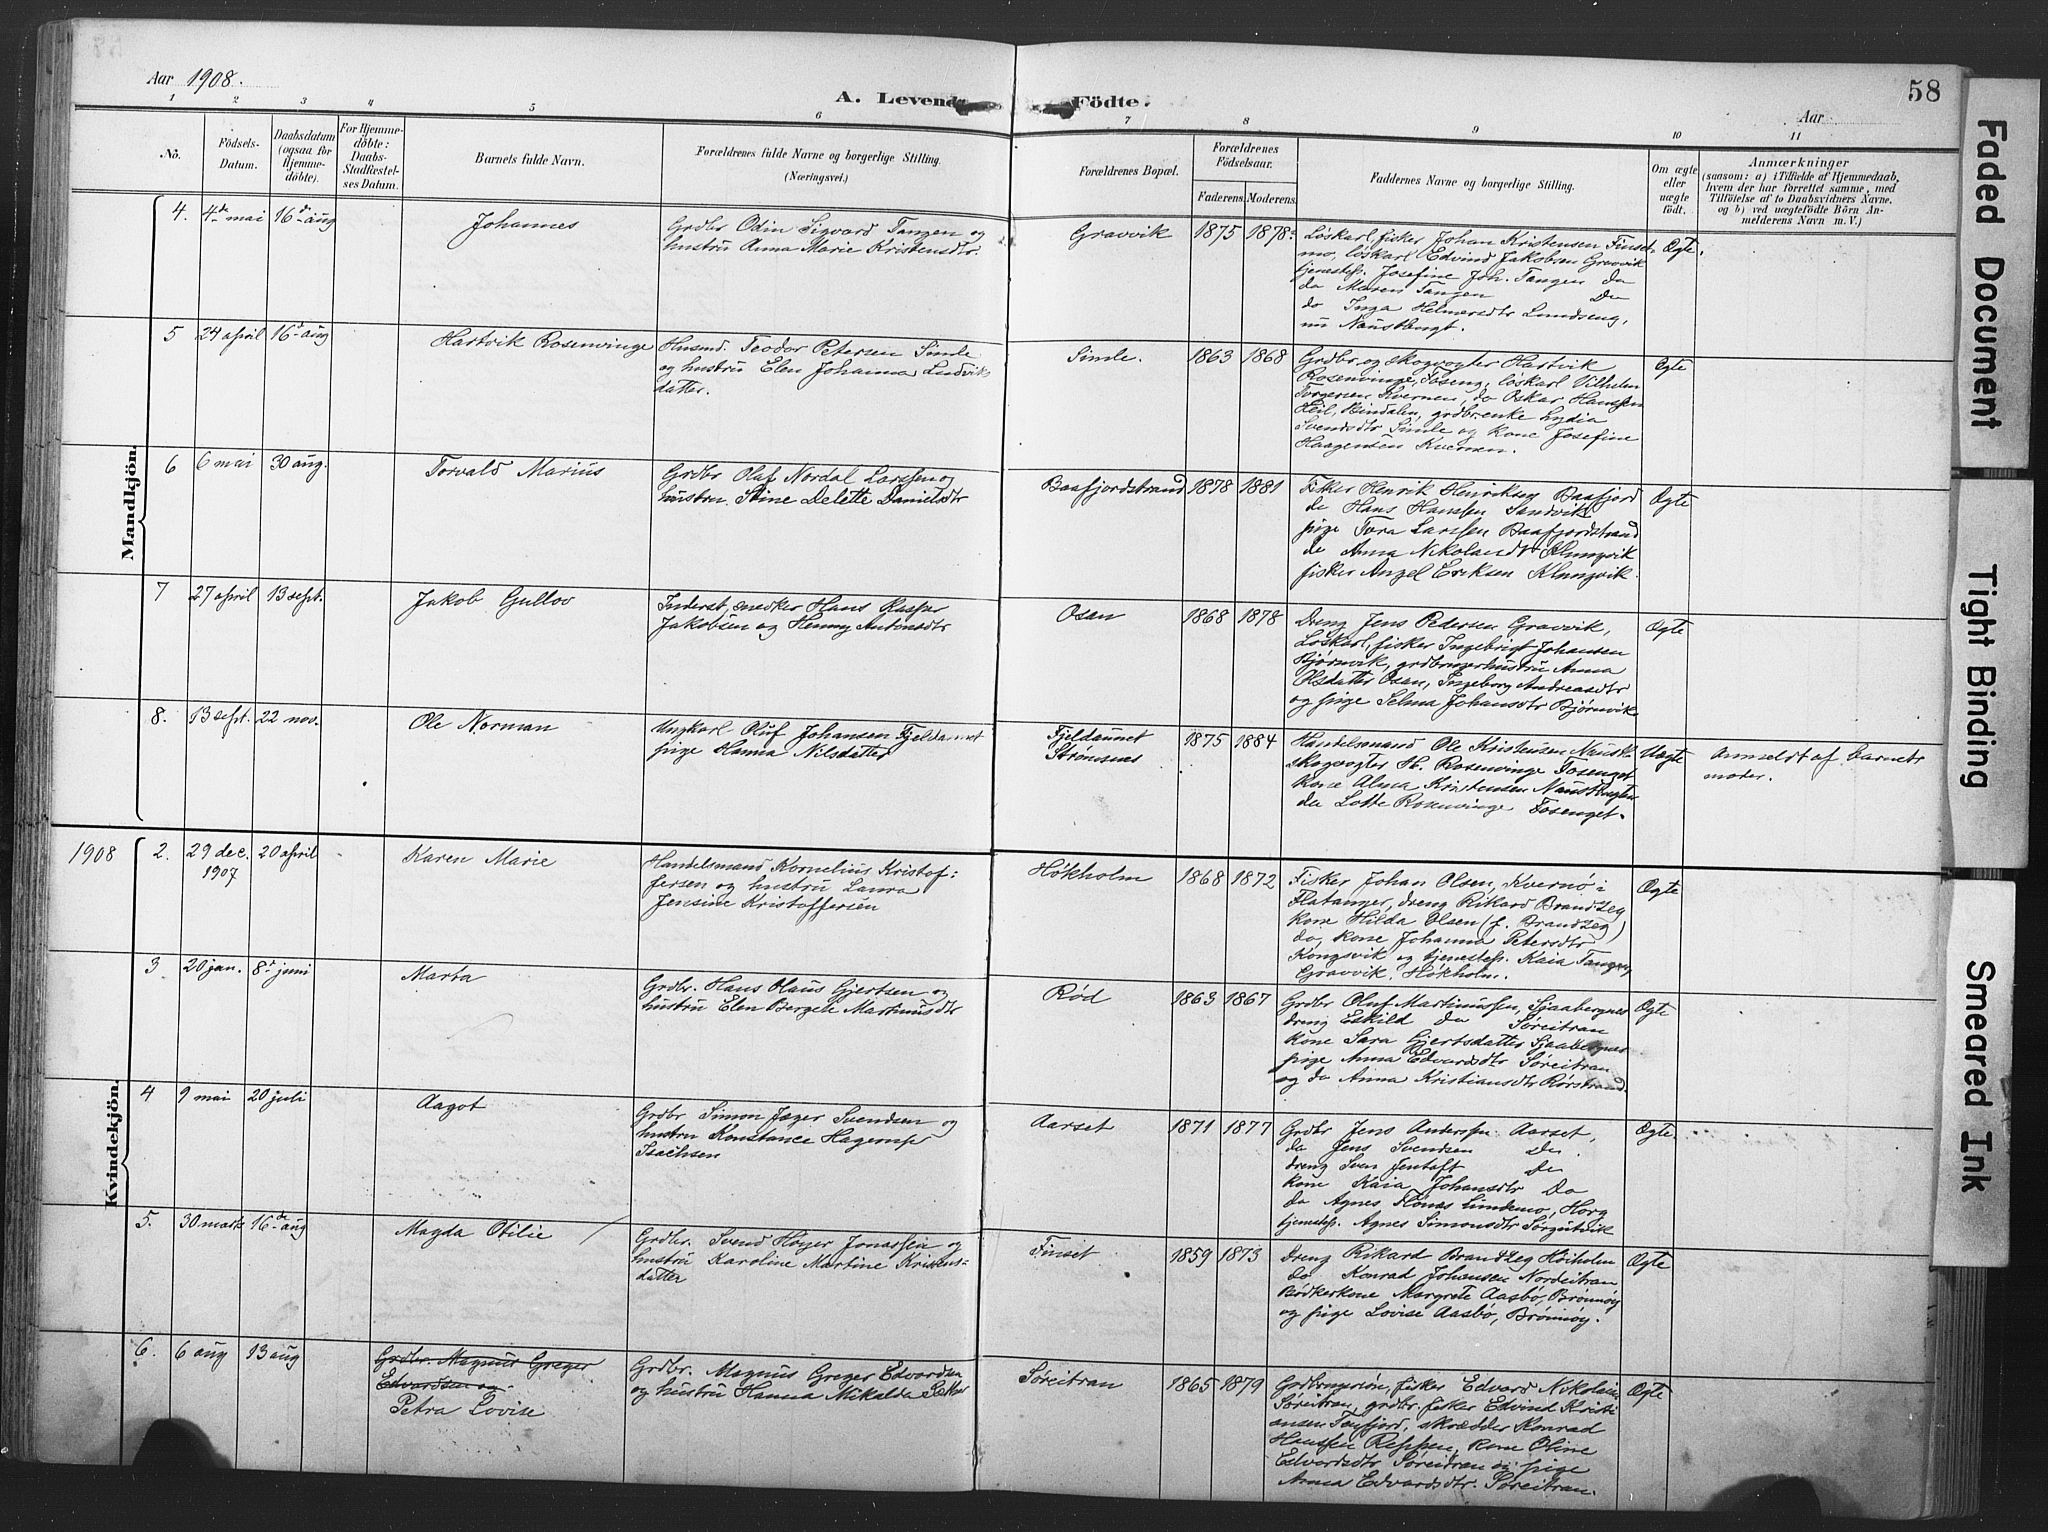 Aar 1908.
A. Levende Födte.
Aar
58
1 2 3 4 5 6 7 8 9 10 11
No.
Födsels-
Datum.
Daabsdatum
(ogsaa for
Hjemme-
döbte).
For Hjemme-
döbte:
Daabs-
Stadfæstel-
ses Datum.
Barnets fulde Navn.
Forældrenes fulde Navne og borgerlige Stilling.
(Næringsvei.)
Forældrenes Bopæl.
Forældrenes
Födselsaar.
Faderens. Moderens.
Faddernes Navne og borgerlige Stilling.
Om ægte
eller
uægte
födt.
Anmærkninger
(saasom: a) i Tilfælde af Hjemmedaab,
hvem der har forrettet samme, med
Tilföielse af to Daabsvidners Navne,
og b) ved uægtefödte Börn An-
melderens Navn m. V.)
Mandkjön.
4. 4de mai 16de aug
Johannes
Grdbr Odin Sigvard Tangen og
hustru Anna Marie Kristensdtr.
Gravvik
1875 1878
Løskarl, fisker Johan Kristensen Finset-
mo, løskarl Edvind Jakobsen Gravvik
tjenestep. Josefine Joh. Tangen do
do Maren Tangen do
do Inga Helmersdtr Lundseng,
nu Naustbugt.
Ægte
5 24 april 16d aug
Hartvik Rosenvinge
Husmd. Teodor Petersen Simle
og hustru Elen Johanna Ludviks
datter.
Simle.
1863 1868
Grdbr. og skogvogter Hartvik
Rosenvinge, Foseng, løskarl Vilhelm
Torgersen Kvernen, do Oskar Hanssen
Heil, Kindalen, grdbr.enke Lydia
Svendsdtr Simle og kone Josefine
Haagensen Kvernen.
Ægte
6 6 mai 30 aug.
Torvald Marius
Grdbr Olaf Nordal Larssen og
hustru Stine Delette Danielsdtr
Baafjordstrand
1878 1881
Fisker Henrik Henriksen Baafjord
do Hans Hanssen Sandvik
pige Tora Larssen Baafjordstrand
do Anna Nikolaisdtr Klungvik
fisker Angel Eriksen Klungvik.
Ægte
7 27 april 13 sept.
Jakob Gullov
Inderst, snedker Hans Kasper
Jakobsen og Henny Antonsdtr
Osan
1868 1878
Dreng Jens Pedersen Gravvik,
Løskarl, fisker Ingebrigt Johansen
Bjørnvik, grdbrugerhustru Anna
Olsdatter Osan, Ingeborg Andreasdtr
og pige Selma Johansdtr Bjørnvik
Ægte
8. 13 sept. 22 nov.
Ole Norman
Ungkarl Oluf Johansen Fjeldaunet
pige Hanna Nilsdatter
Fjeldaunet
Strømsnes
1875 1884
Handelsmand Ole Kristensen Naustb.
skogvogter H. Rosenvinge Fosenget
kone Alma Kristensen Naustbugten
do Lotte Rosenvinge Fosenget.
Uægte
Anmeldt af barnets
moder.
Kvindekjön.
1908
2. 29 dec. 1907 20 april
Karen Marie
Handelsmand Kornelius Kristof-
fersen og hustru Laura
Jensine Kristoffersen
Høkholm
1868 1872
Fisker Johan Olsen, Kvernø i
Flatanger, dreng Rikard Brandzeg
kone Hilda Olsen (f. Brandzeg)
do, kone Johanna Petersdtr
Kongsvik og tjenestep. Kaia Tangen
Gravvik. Høkholm.
Ægte
3 20 jan. 8d juni
Marta
Grdbr. Hans Olaus Gjertsen og
hustru Elen Bergete Martinusdtr
Rød
1863 1867
Grdbr Oluf Martinussen, Sjaabergnes
dreng Eskild do Søreitran
kone Sara Gjertsdatter Sjaabergnes
pige Anna Edvardsdtr Søreitran
og do Anna Kristiansdtr Rørstrand.
Ægte
4 9 mai 20 juli
Aagot
Grdbr Simon Jæger Svendsen og
hustru Konstance Hagerup
Isachsen
Aarset
1871 1877
Grdbr Jens Anderssen Aarset,
do Jens Svendsen do.
dreng Sven Jentoft do
kone Kaia Johansdtr do
do Agnes Flønæs Lindemo, Horg
tjenestep. Agnes Simonsdtr Sørgutvik
Ægte
5. 30 marts 16de aug
Magda Otilie
Grdbr. Svend Høyer Jonassen og
hustru Karoline Martine Kristens-
datter
Finset
1859 1873
Dreng Rikard Brandzeg Høiholm
do Konrad Johansen Nordeitran
Bødkerkone Margrete Aasbø, Brønnøy
og pige Lovise Aasbø, Brønnøy.
Ægte
6. 6 aug 13 aug
Grdbr. Magnus Greger
Edvardsen og
Petra Lovise
Grdbr. Magnus Greger Edvardsen
og hustru Hanna Mikelda
Søreitran
1865 1879
Grdbrugersøn, fisker Edvard Nikolaisen
Søreitran, grdbr. fisker Edvind Kristi
ansen Toufjord, skrædder Konrad
Hanssen Reppen, kone Oline
Edvardsdtr Søreitran og pige
Anna Edvardsdtr. Søreitran.
Ægte
Faded Document
Tight Binding
Smeared Ink